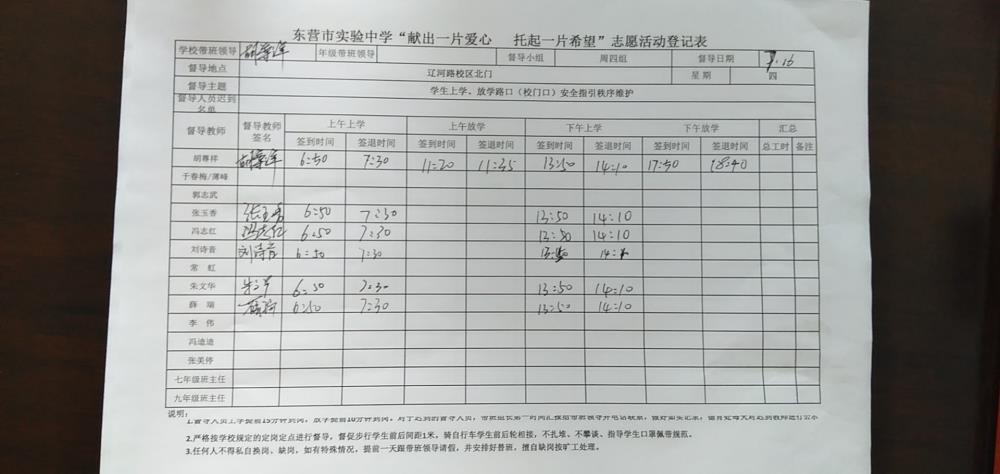 东营市实验中学“献出一片爱心 托起一片希望”志愿活动登记表
学校带班领导 胡尊祥 年级带班领导 督导小组 周四组 督导日期 7.16
督导地点 辽河路校区北门 星期 四
督导主题 学生上学、放学路口（校门口）安全指引秩序维护
督导人员迟到名单
督导教师 督导教师签名 上午上学 上午放学 下午上学 下午放学 汇总
签到时间 签退时间 签到时间 签退时间 签到时间 签退时间 签到时间 签退时间 总工时 备注
胡尊祥 胡尊祥 6:50 7:30 11:20 11:35 13:50 14:10 17:50 18:40
于春梅/薄峰
郭志武
张玉香 张玉香 6:50 7:30 13:50 14:10
冯志红 冯志红 6:50 7:30 13:50 14:10
刘诗音 刘诗音 6:50 7:30 13:50
常 虹
朱文华 6:50 7:30 13:50 14:10
薛 瑞 薛瑞 6:50 7:30 13:50 14:10
李 伟
冯迪迪
张美停
七年级班主任
九年级班主任
说明：
2.严格按学校规定的定岗定点进行督导，督促步行学生前后间距1米，骑自行车学生前后轮相接，不扎堆、不攀谈、指导学生口罩佩带规范。
3.任何人不得私自换岗、缺岗，如有特殊情况，提前一天跟带班领导请假，并安排好替班，擅自缺岗按旷工处理。